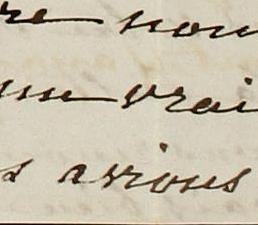 re nou
une vrai
s avions